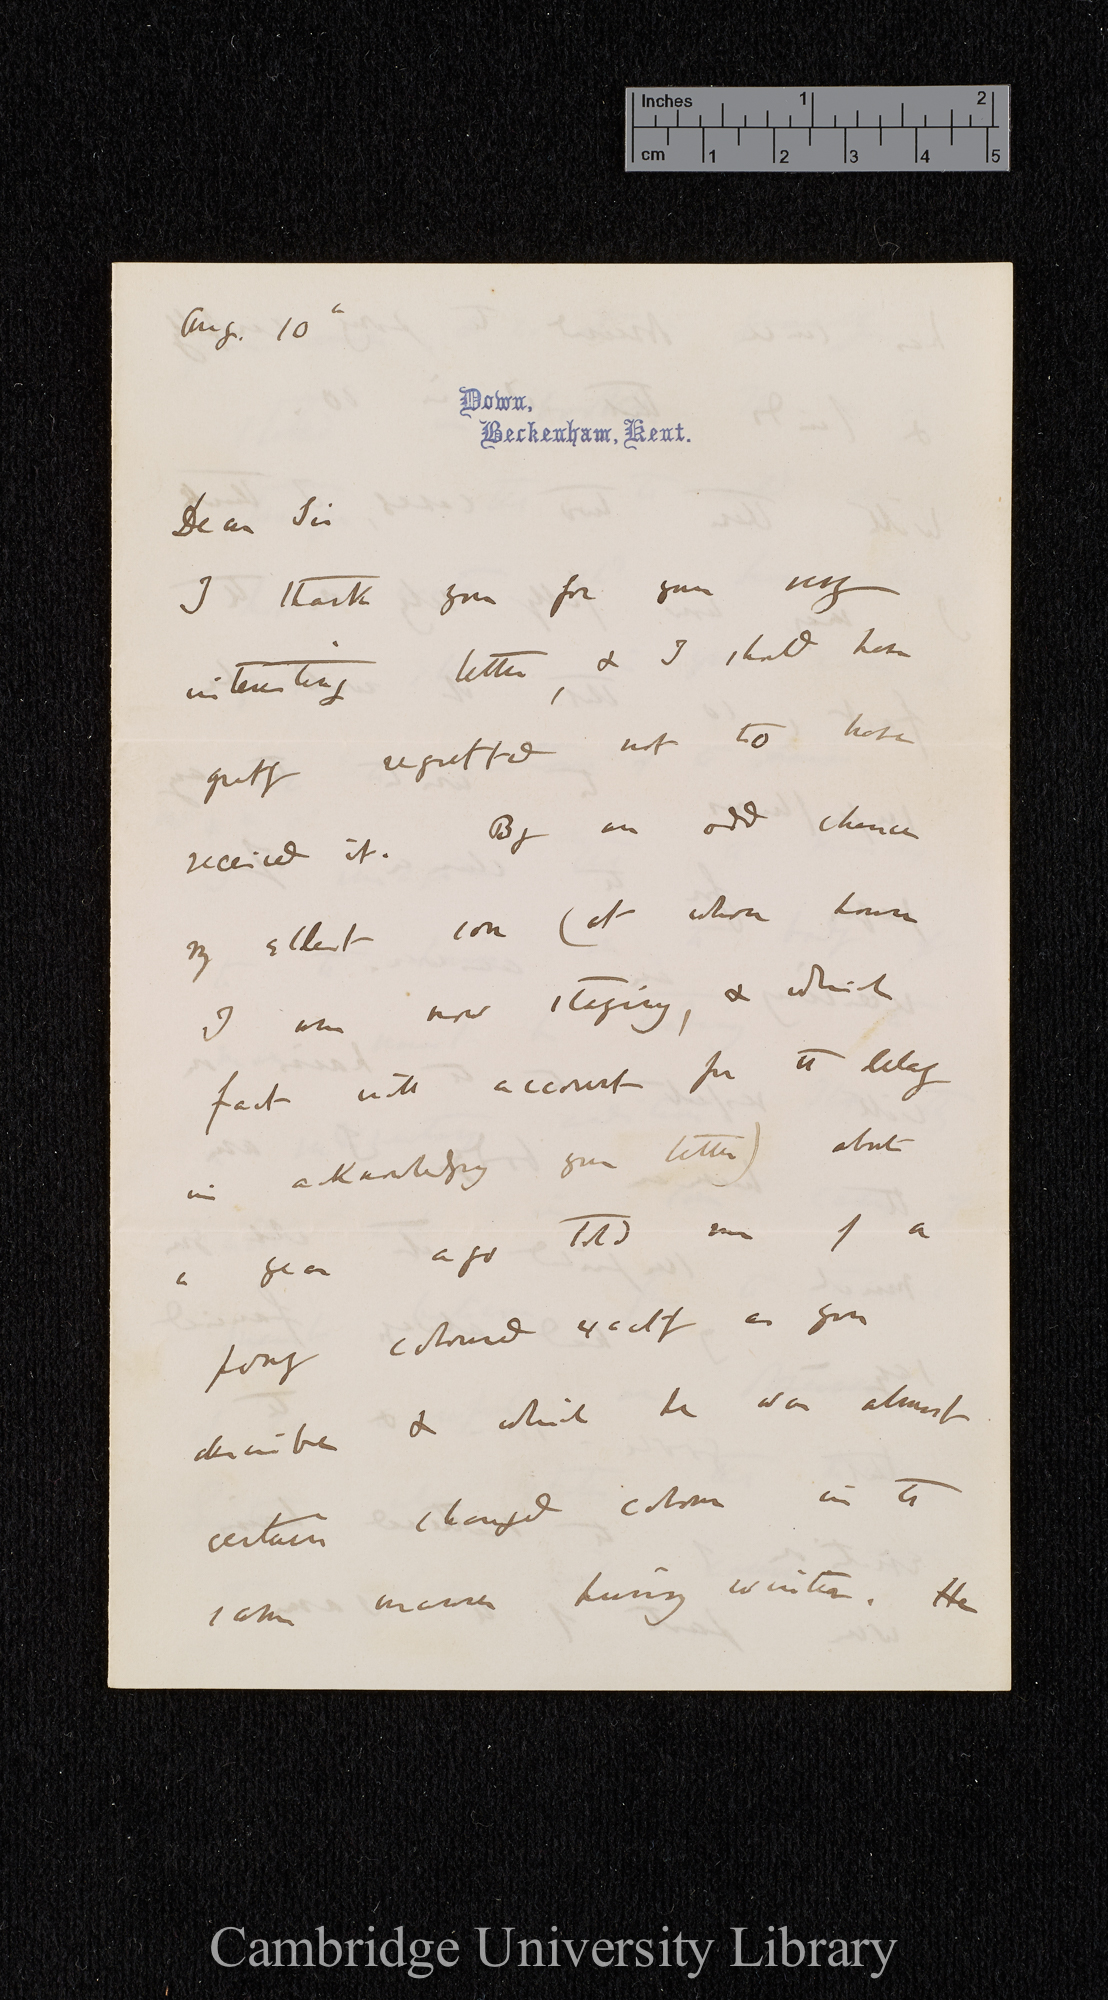 Inches 1 2
cm 1 2 3 4 5
Aug. 10th
Down,
Beckenham, Kent.
Dear Sir
I thank you for your very
interesting letter, & I should have
greatly regretted not to have
received it. By an odd chance
my eldest son (at whose house
I am now staying, & which
fact will account for the delay
in acknowledging your letter) about
a year ago told me of a
pony coloured exactly as you
describe & which he was almost
certain changed colour in the
same manner during winter. He
Cambridge University Library